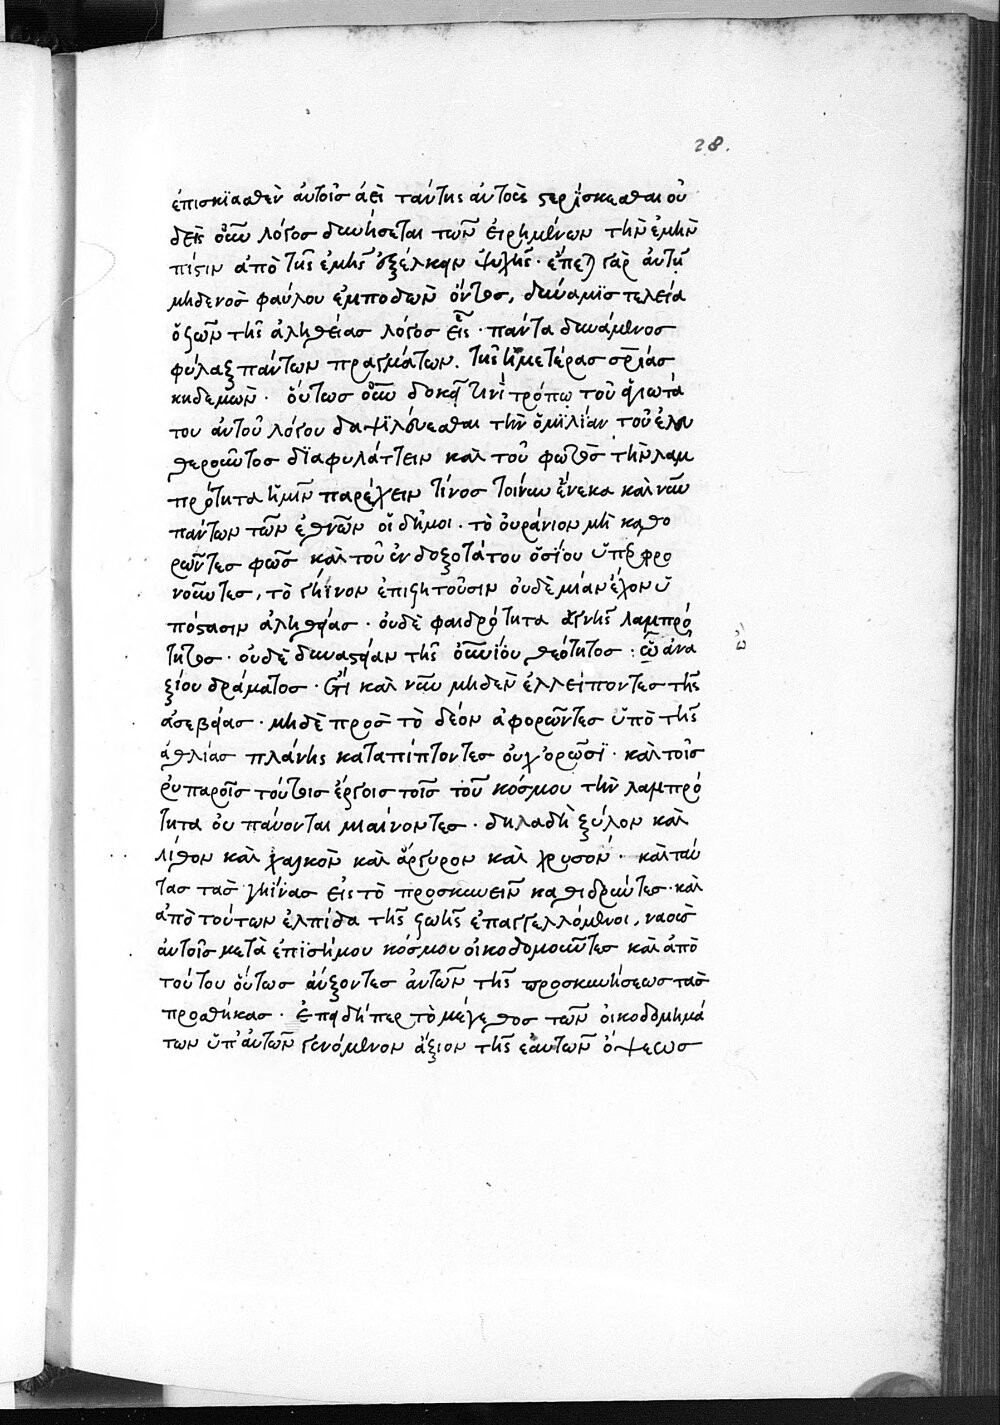 28.
ἐπισκϊασθὲν αὐτοῖσ ἀεὶ ταύτης αὐτοὺς στερΐσκεσθαι οὐ
δεὶς οὖν λόγοσ δυνήσεται τῶν εἰρημένων τὴν ἐμὴν
πίστιν ἀπὸ τῆς ἐμῆς ἐξέλκειν ψυχῆς. ἔπεται γὰρ αὐτῆ
μηδενὸσ φαύλου ἐμποδὼν ὄντοσ, δυνάμϊσ τελεία
ὅζων τῆσ ἀληθείασ λόγοσ εἷς. πάντα δυνάμενοσ
φύλαξ πάντων πραγμάτων. τῆσ ἡμετέρασ σωτηρίασ
κηδεμὼν. οὕτωσ οὖν δοκεῖ τινὶ τρόπῳ τοῦ
του αὐτοῦ λόγου δαψιλεύεσθαι τὴν ὁμϊλίαν τοῦ ἐλευ
θεροῦντοσ δϊαφυλάττειν καὶ τοῦ φωτὸσ τὴν λαμ
πρότητα ἡμῖν παρέχειν τίνοσ τοίνυν ἕνεκα καὶ νῦν
πάντων τῶν ἐθνῶν οἵ δῆμοι. τὸ οὐράνιον μὴ καθο
ρῶντεσ φῶσ καὶ τοῦ ἐνδοξοτάτου ὅσίου ὕπερφρο
νοῦντεσ, τὸ γήϊνον ἐπιζητοῦσιν οὐδὲ μίαν ἔχον ὕ
πόστασιν ἀληθείασ. οὐδὲ φαιδρότητα ἁγνῆσ λαμπρό
τητοσ. οὐδὲ δυναστείαν τῆσ θεότητοσ: ὦ ἀνα
ξίου δράματοσ. ἔτι καὶ νῦν μηδὲν ἐλλείποντεσ τῆσ
ἀσεβείασ. μηδὲ πρὸσ τὸ δέον ἀφορῶντεσ ὕπὸ τῆσ
ἀθλίασ πλάνης καταπίπτοντεσ οὐχ ὁρῶσϊ. καὶ τοῖσ
ῥυπαροῖσ τούτοισ ἔργοισ τοῖσ τοῦ κόσμου τὴν λαμπρό
τητα οὐ παύονται μιαίνοντεσ. δηλαδὴ ξύλον καὶ
λίθον καὶ χαλκὸν καὶ ἄργυρον καὶ χρυσὸν. καὶ ταύ
τασ τασ γηΐνασ εἰσ τὸ προσκυνεῖν καθιδρύντεσ. καὶ
ἀπὸ τούτων ἐλπίδα τῆσ ζωῆσ ἐπαγγελλόμενοι, ναοὺσ
αὐτοῖσ μετὰ ἐπϊσήμου κόσμου οἰκοδομοῦντεσ καὶ ἀπὸ
τούτου οὕτωσ αὔξοντεσ αὐτῶν τῆσ προσκυνήσεωσ τὰσ
προσθήκασ. ἐπειδήπερ τὸ μέγεθοσ τῶν οἰκοδομημά
των ὕπ' αὐτῶν γενόμενον ἄξιον τῆσ ἑαυτῶν ὄψεωσ